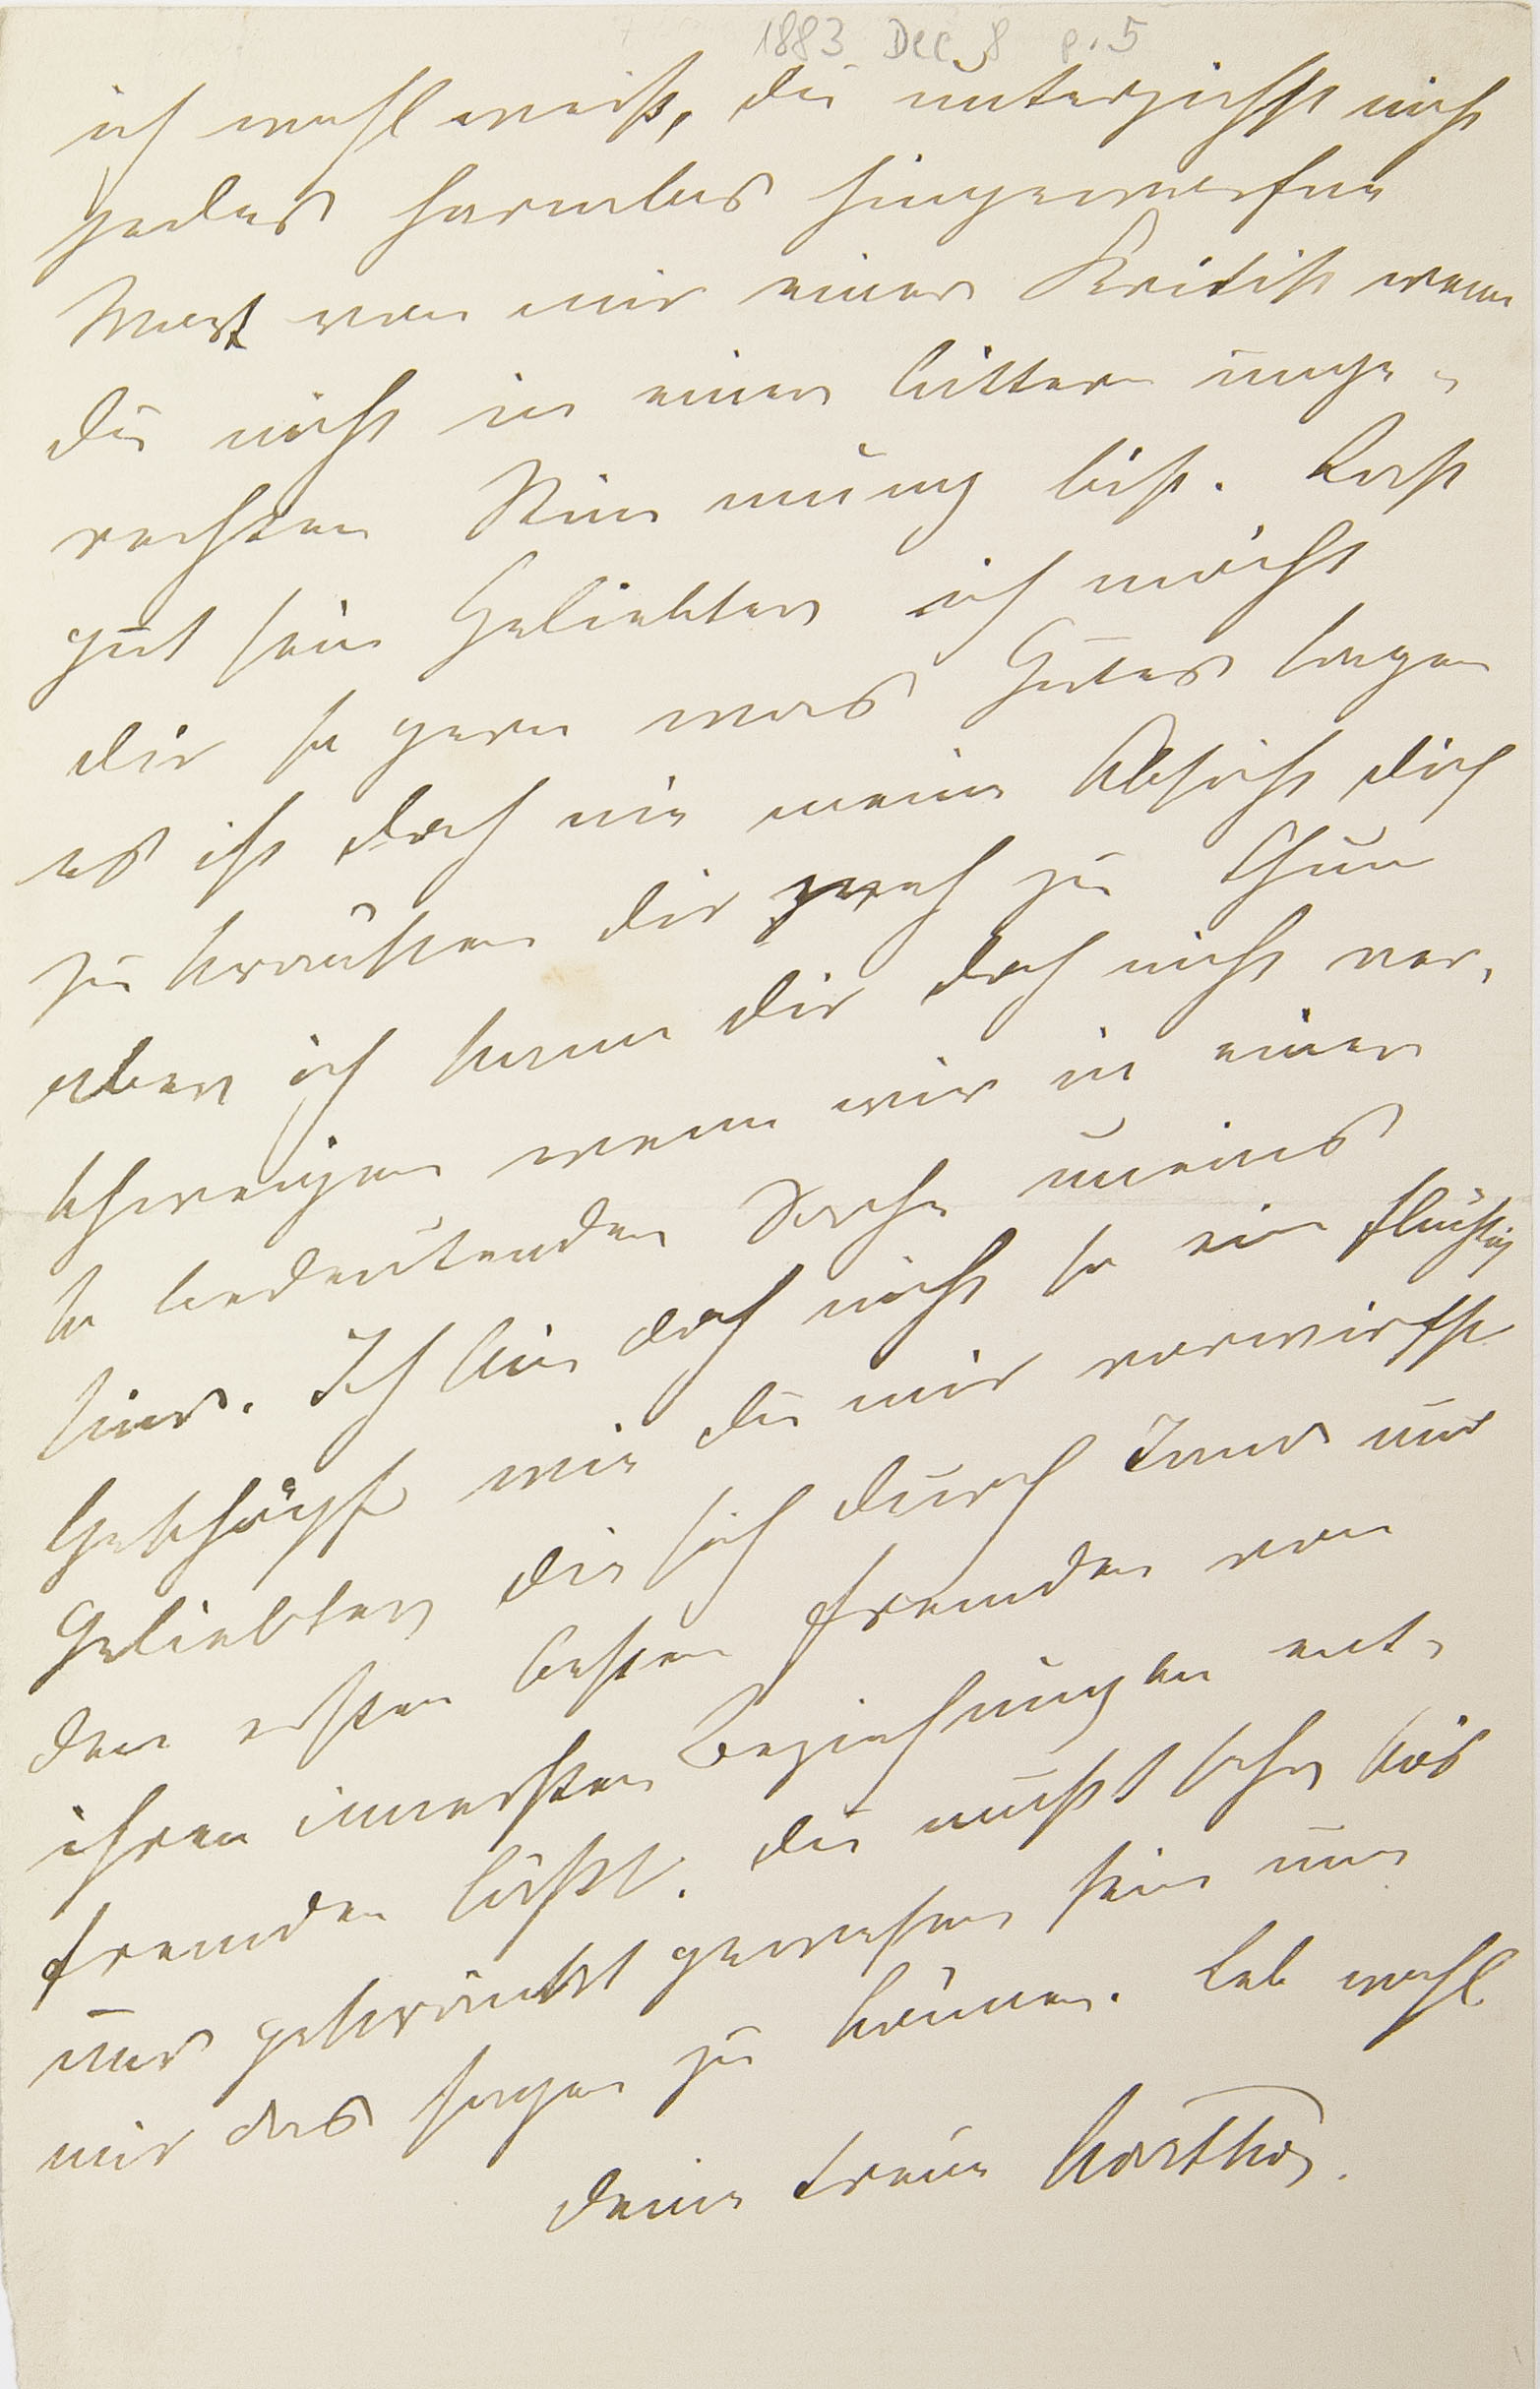 1883 Dec 8 p. 5
ich wohl weiß, du unterziehst nicht
jedes harmlos hingeworfne
Wort von mir einer Kritik wenn
du nicht in einer bittern unge-
rechten Stimmung bist. Laß
gut sein Geliebter ich möcht
dir so gern was Gutes sagen
es ist doch nie meine Absicht dich
zu kränken dir weh zu thun
aber ich kann dir doch nicht ver-
schweigen wenn wir in einer
so bedeutenden Sache uneins
sind. Ich bin doch nicht so ein flüchtig
Geschöpf wie du mir vorwirfst
Geliebter die sich durch Tand und
den ersten besten Fremden von
ihren innersten Beziehungen ent-
fremden läßt. du mußt sehr bös
und gekränkt gewesen sein um
mir das sagen zu können. Leb wohl
deine treue Marthe.